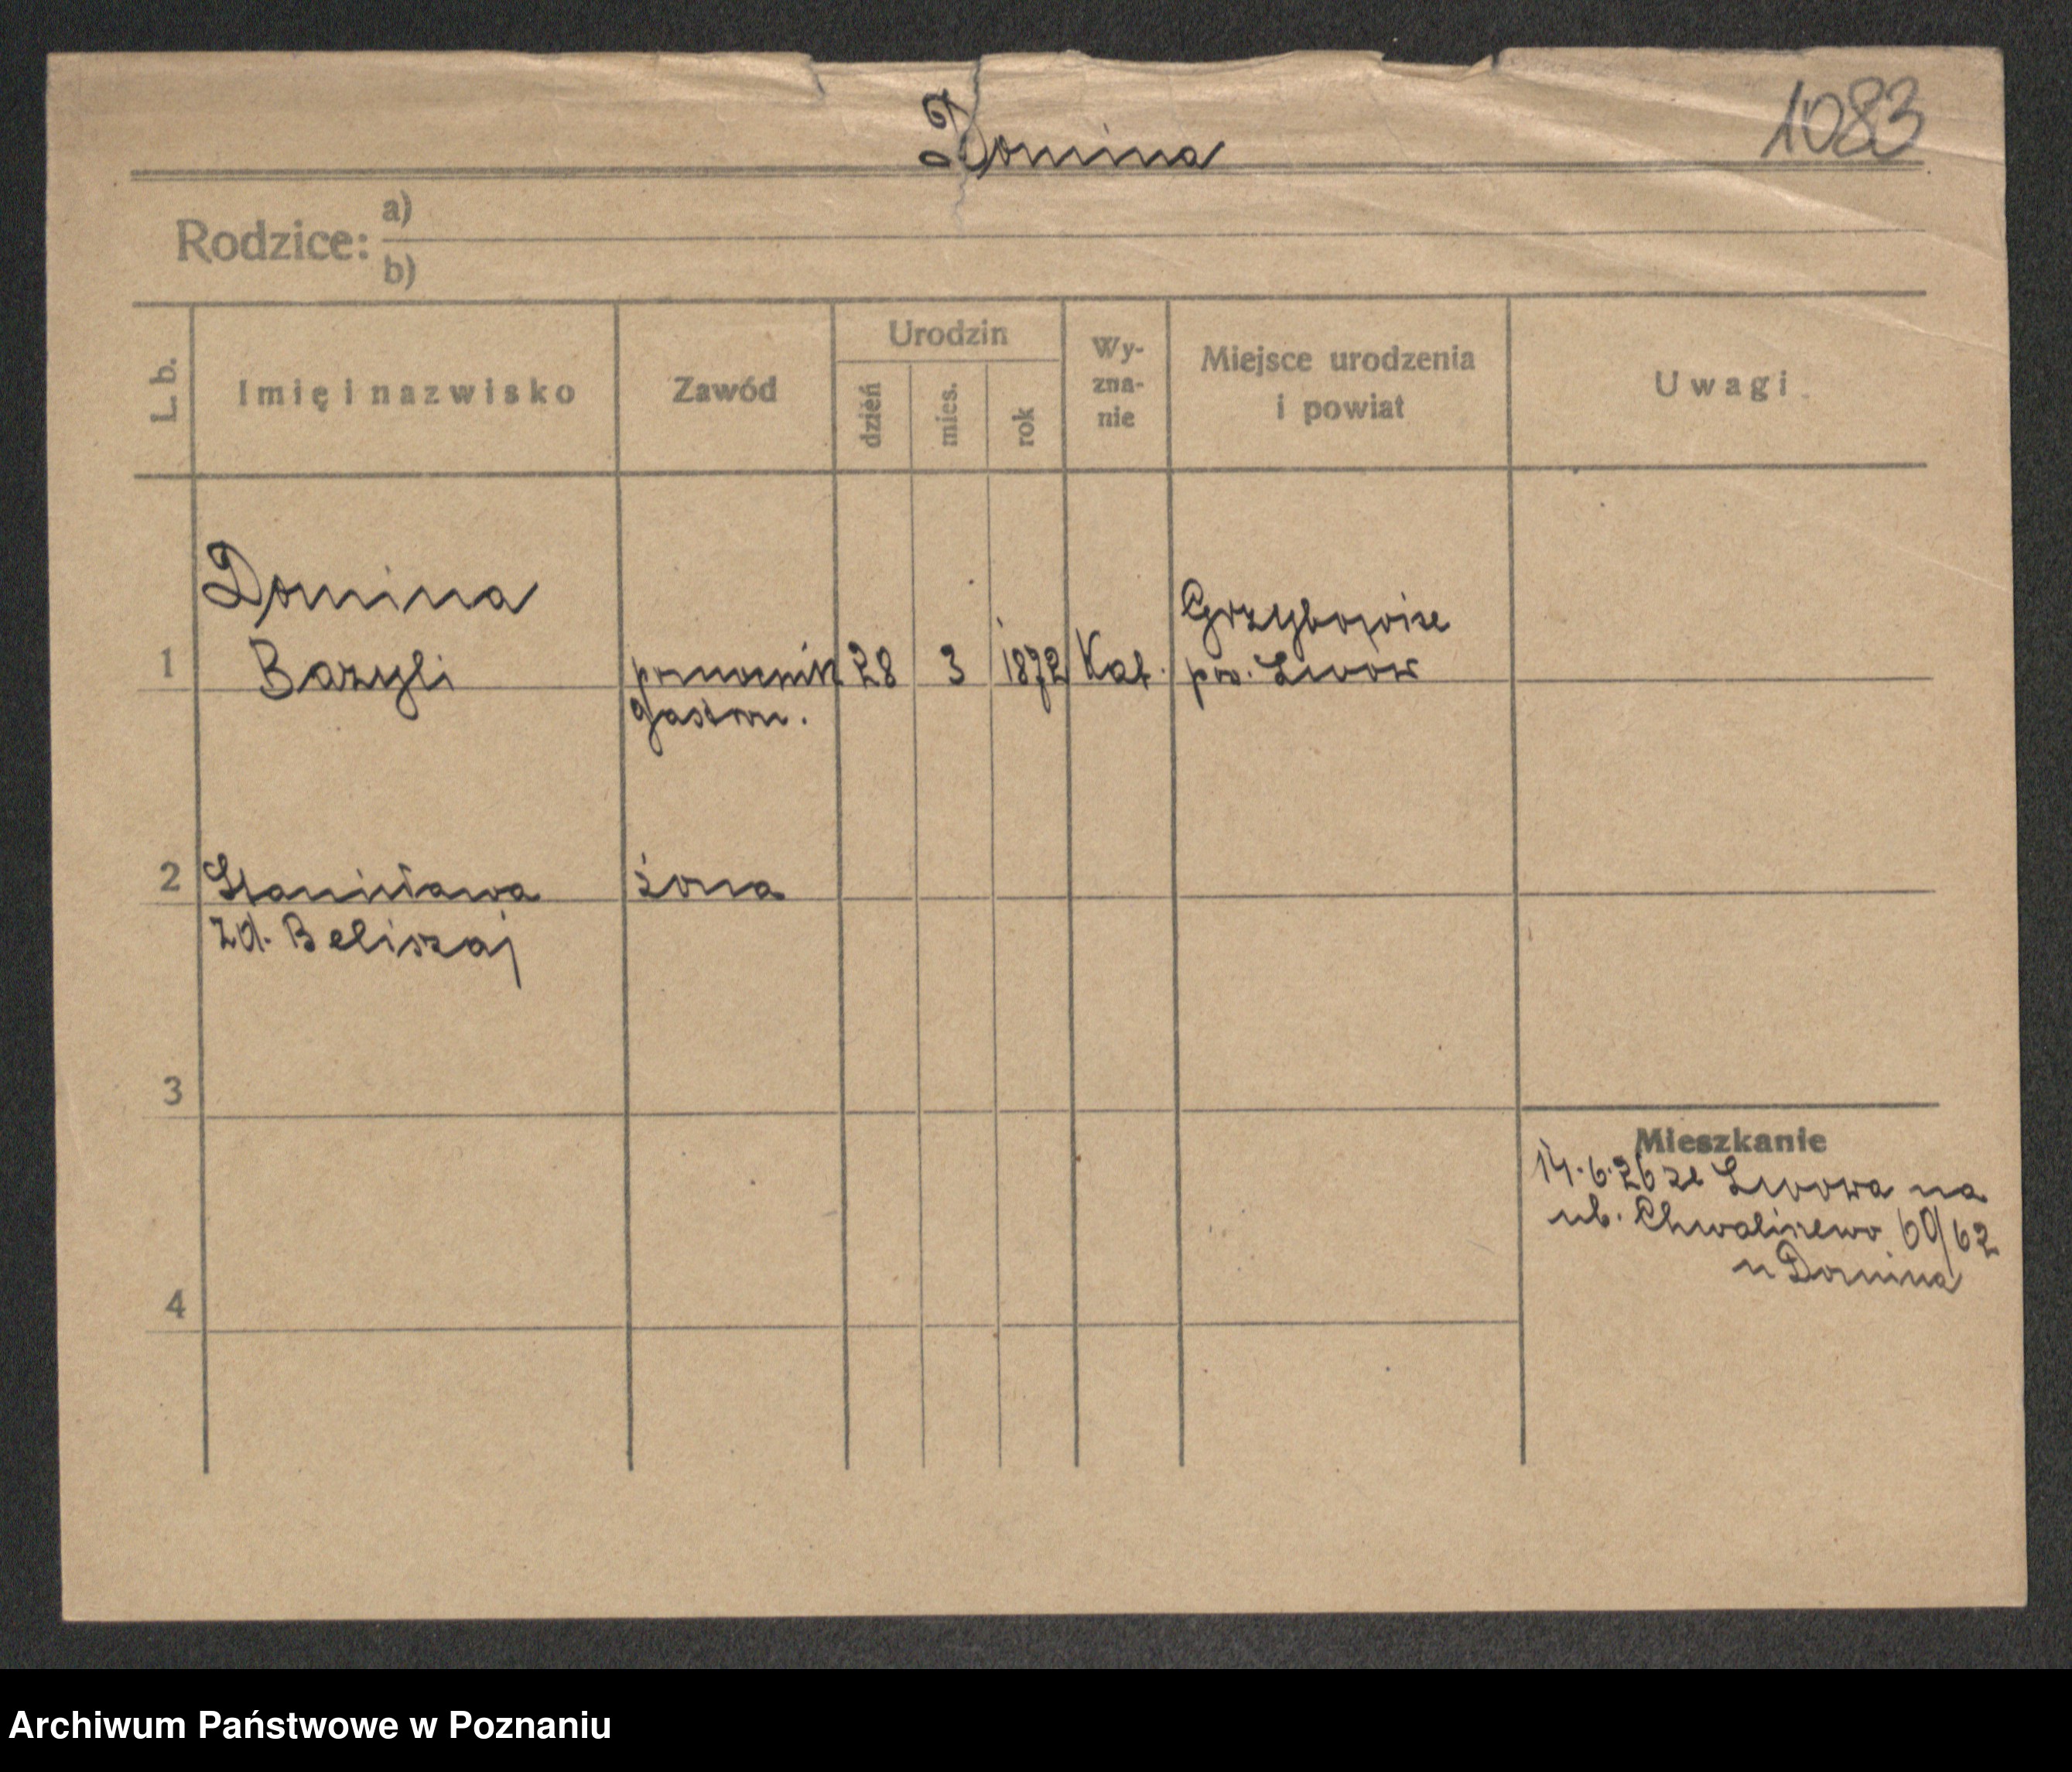 Domina
1083
Rodzice:
a)
b)
L. b.
Imię i nazwisko
Zawód
Urodzin
dzień
mies.
rok
Wy-
zna-
nie
Miejsce urodzenia
i powiat
Uwagi
Domina
1 Bazyli pomocnik 28 3 1872 Kat.
gastron.
Grzybowice
pow. Lwów
2 Stanisława żona
zd. Beliszaj
3
4
Mieszkanie
14.6.26 ze Lwowa na
ul. Chwaliszewo 60/62
u Domina
Archiwum Państwowe w Poznaniu